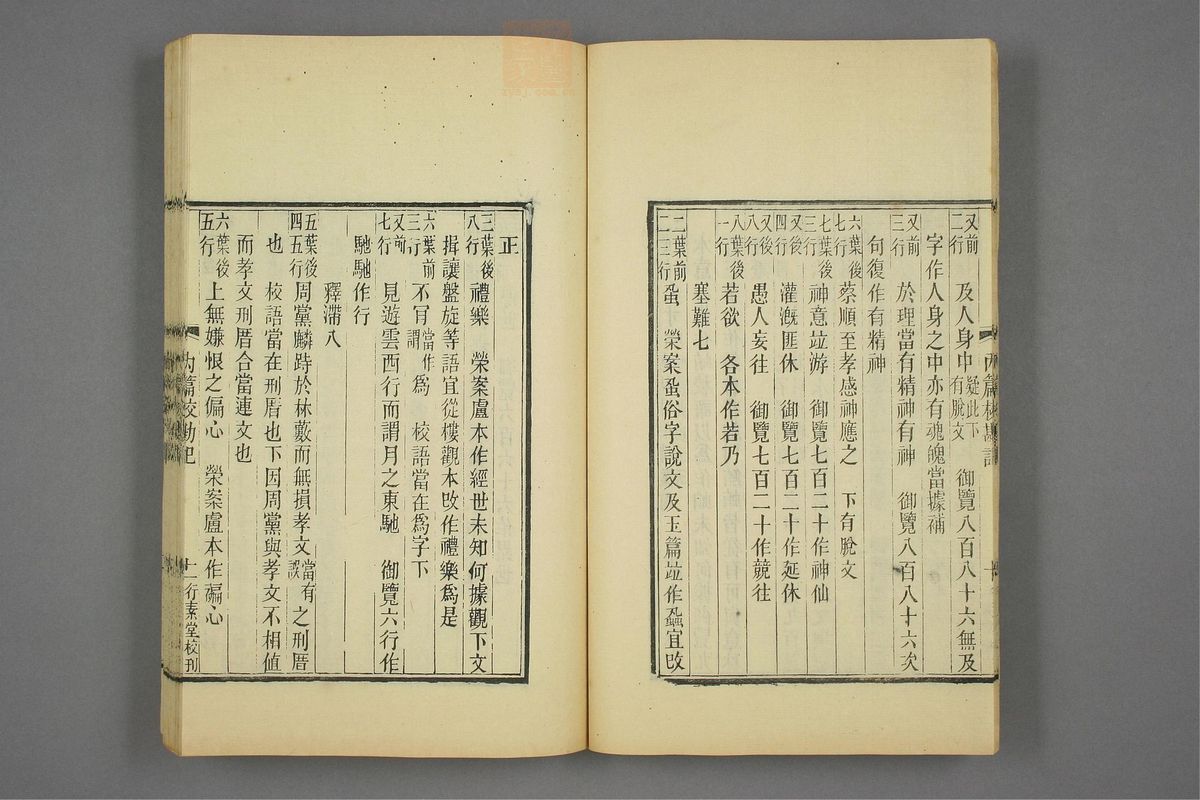 又前二行 及人身中 疑此下有脫文 御覽八百八十六無及
字作人身之中亦有魂魄當據補
又前三行 於理當有精神有神 御覽八百八十六次
句復作有精神
六葉後七行 蔡順至孝感神應之 下有脫文
七葉後三行 神意竝游 御覽七百二十作神仙
又後四行 灌漑匪休 御覽七百二十作延休
又後八行 愚人妄往 御覽七百二十作競往
八葉後一行 若欲 各本作若乃
塞難七
二葉前二三行 蝨 榮案蝨俗字說文及玉篇竝作蝨宜改
正
三葉後八行 禮樂 榮案盧本作經世未知何據觀下文
揖讓盤旋等語宜從樓觀本改作禮樂爲是
六葉前三行 不冐 當作謂 爲 校語當在爲字下
又前七行 見遊雲西行而謂月之東馳 御覽六行作
馳馳作行
釋滯八
五葉後四五行 周黨麟跱於林藪而無損孝文 當有誤 之刑厝
也 校語當在刑厝也下因周黨與孝文不相値
而孝文刑厝合當連文也
六葉後五行 上無嫌恨之偏心 榮案盧本作褊心
內篇校勘記
十一 行素堂校刊